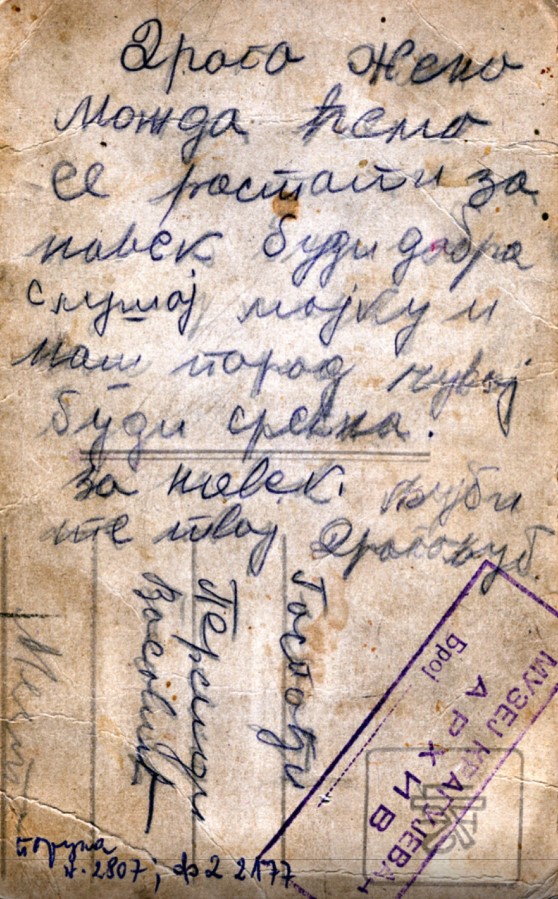 Драга жено
можда ћемо
се растати за
навек буди добра
слушај мајку и
наш пород чувај
буди срећна.
за навек. љуби
те твој Драгољуб
Госпођи
Персиди
Васовић
МУЗЕЈ КРАГУЈЕВАЦ
АРХИВ
Број
порука
и. 2807; ф2 2177